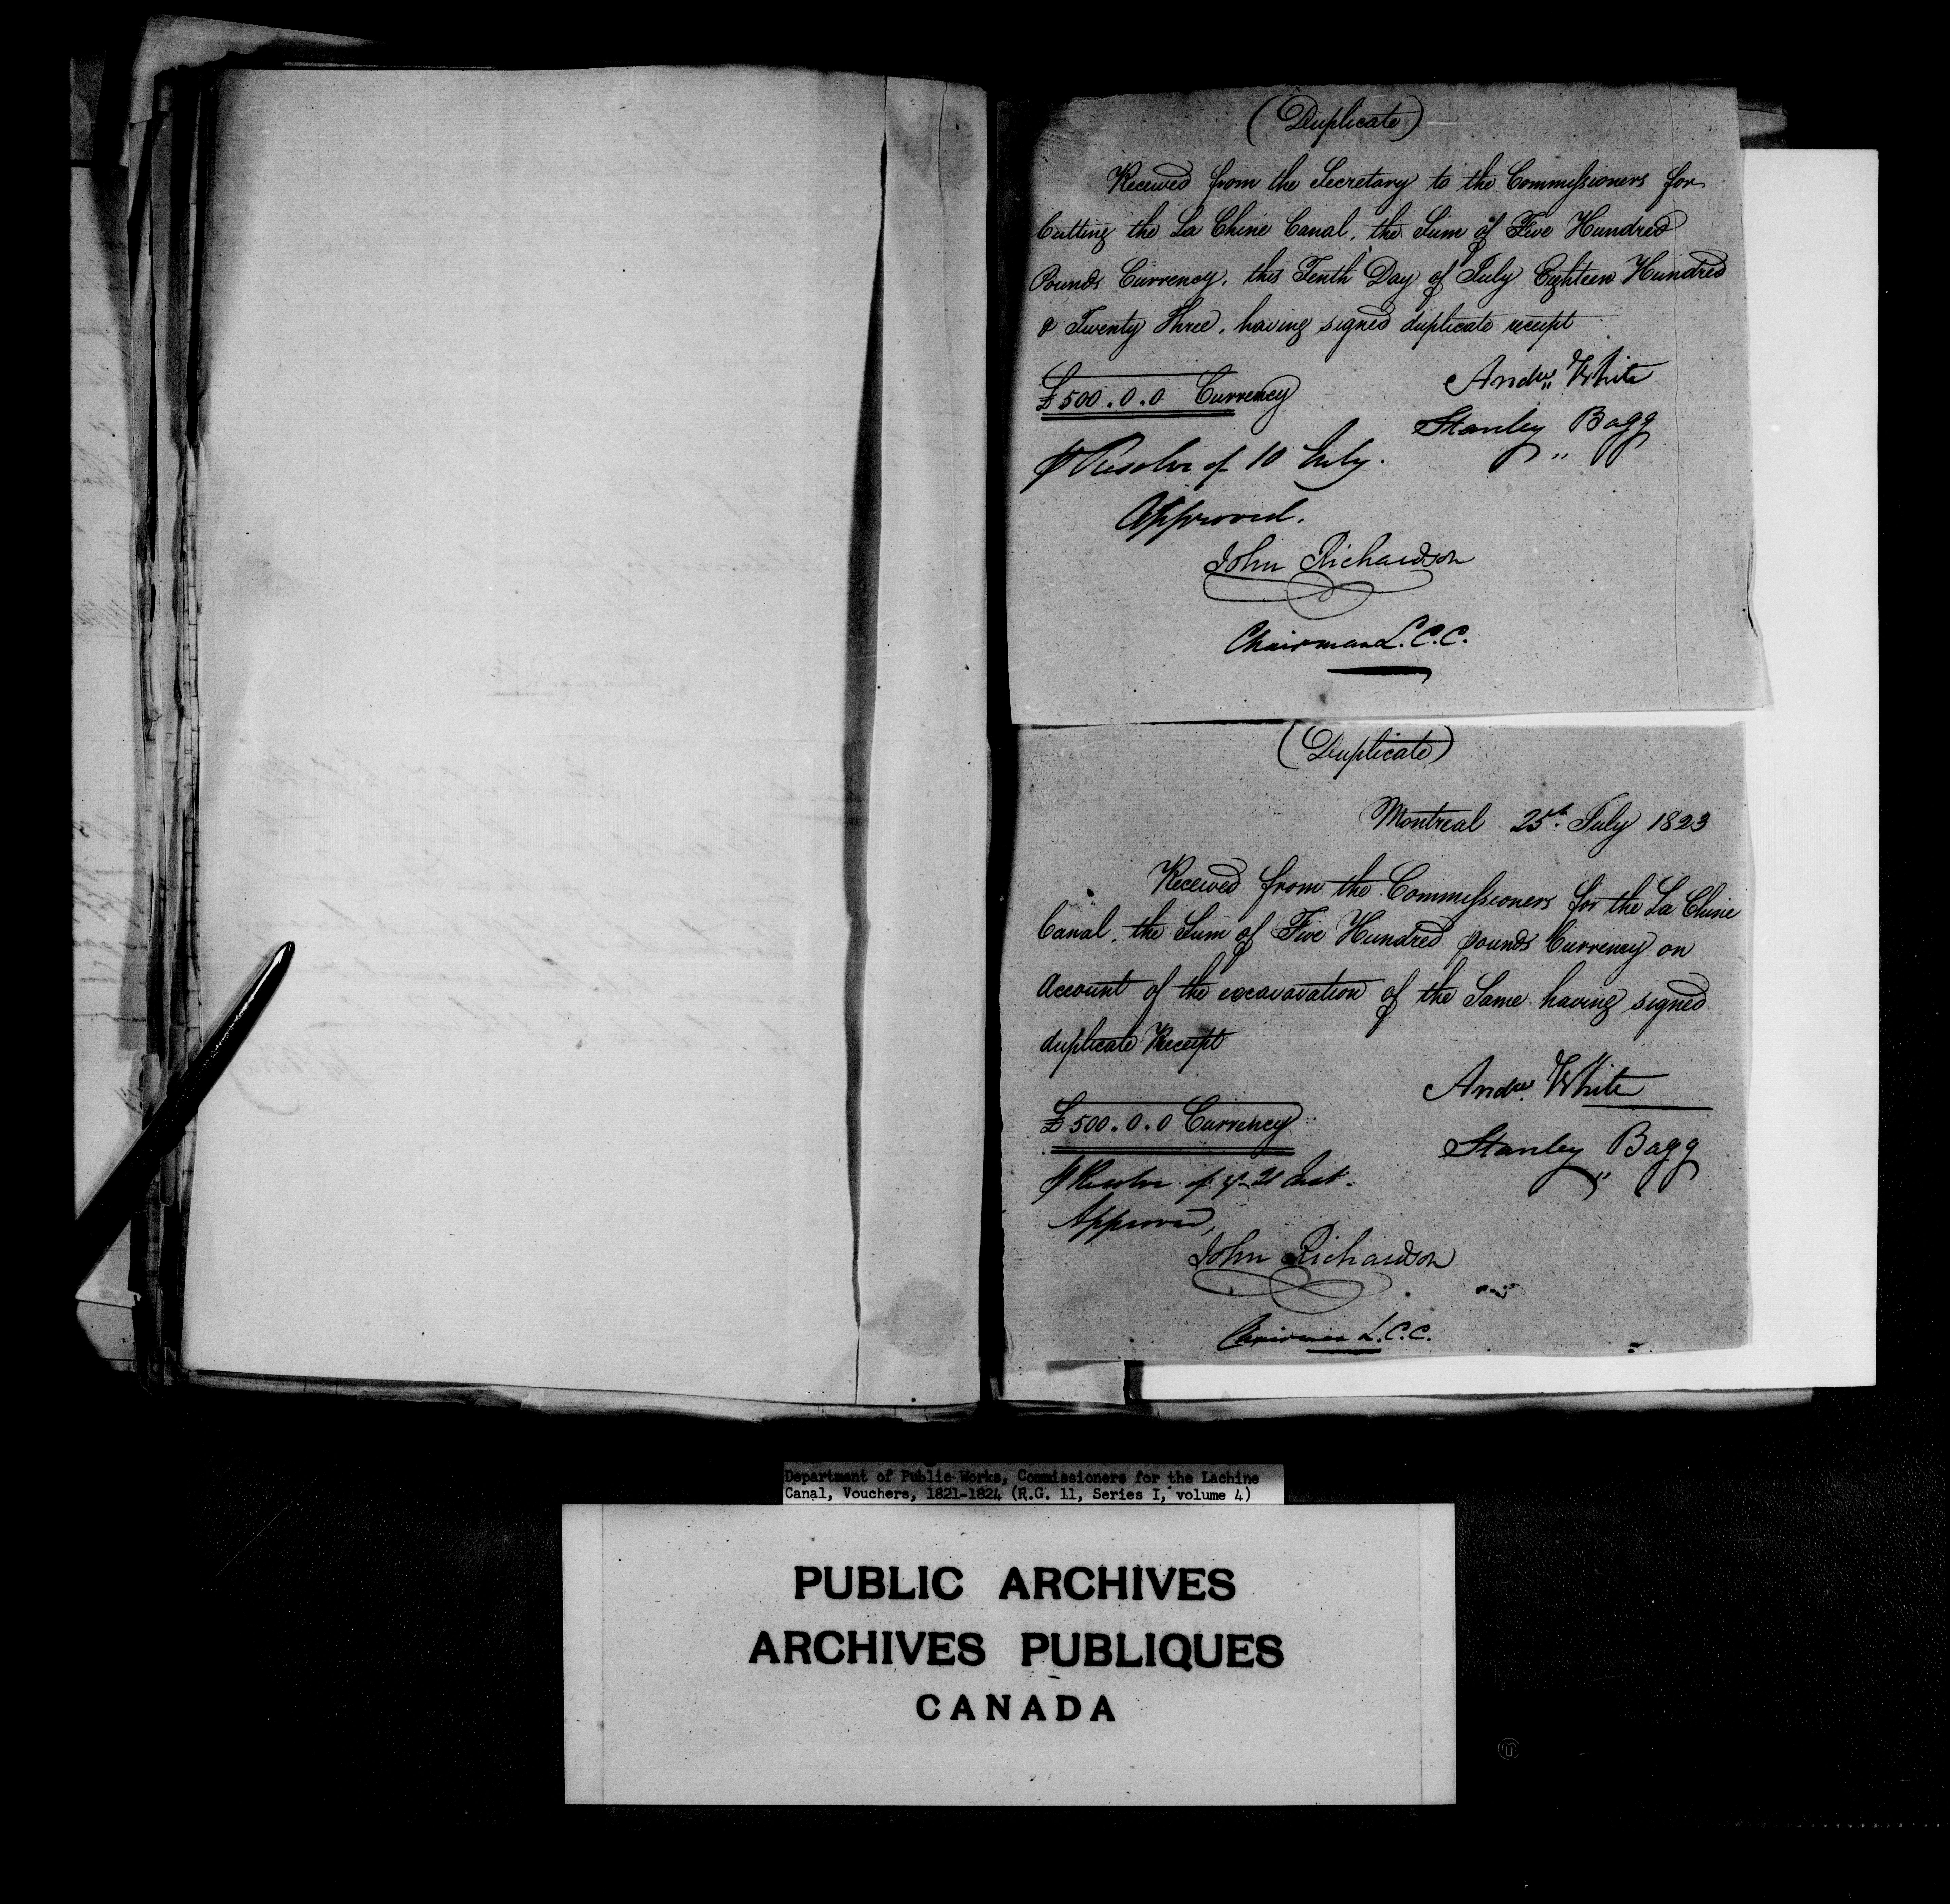 (Duplicate)
Received from the Secretary to the Commissioners for
Cutting the La Chine Canal, the Sum of Five Hundred
Pounds Currency, this Tenth Day of July Eighteen Hundred
& Twenty Three, having signed duplicate receipt
£500.0.0 Currency
Andw. White
Stanley Bagg
⅌ Resolve of 10 July.
Approved.
John Richardson
Chairman L.C.C.
(Duplicate)
Montreal 25th July 1823
Received from the Commissioners for the La Chine
Canal, the Sum of Five Hundred pounds Currency on
Account of the excavavation of the Same having signed
duplicate Receipt
£500.0.0 Currency
Andw. White
Stanley Bagg
⅌ Resolve of ye 21 Inst.
Approved,
John Richardson
Chairman L.C.C.
Department of Public Works, Commissioners for the Lachine
Canal, Vouchers, 1821-1824 (R.G. 11, Series I, volume 4)
PUBLIC ARCHIVES
ARCHIVES PUBLIQUES
CANADA